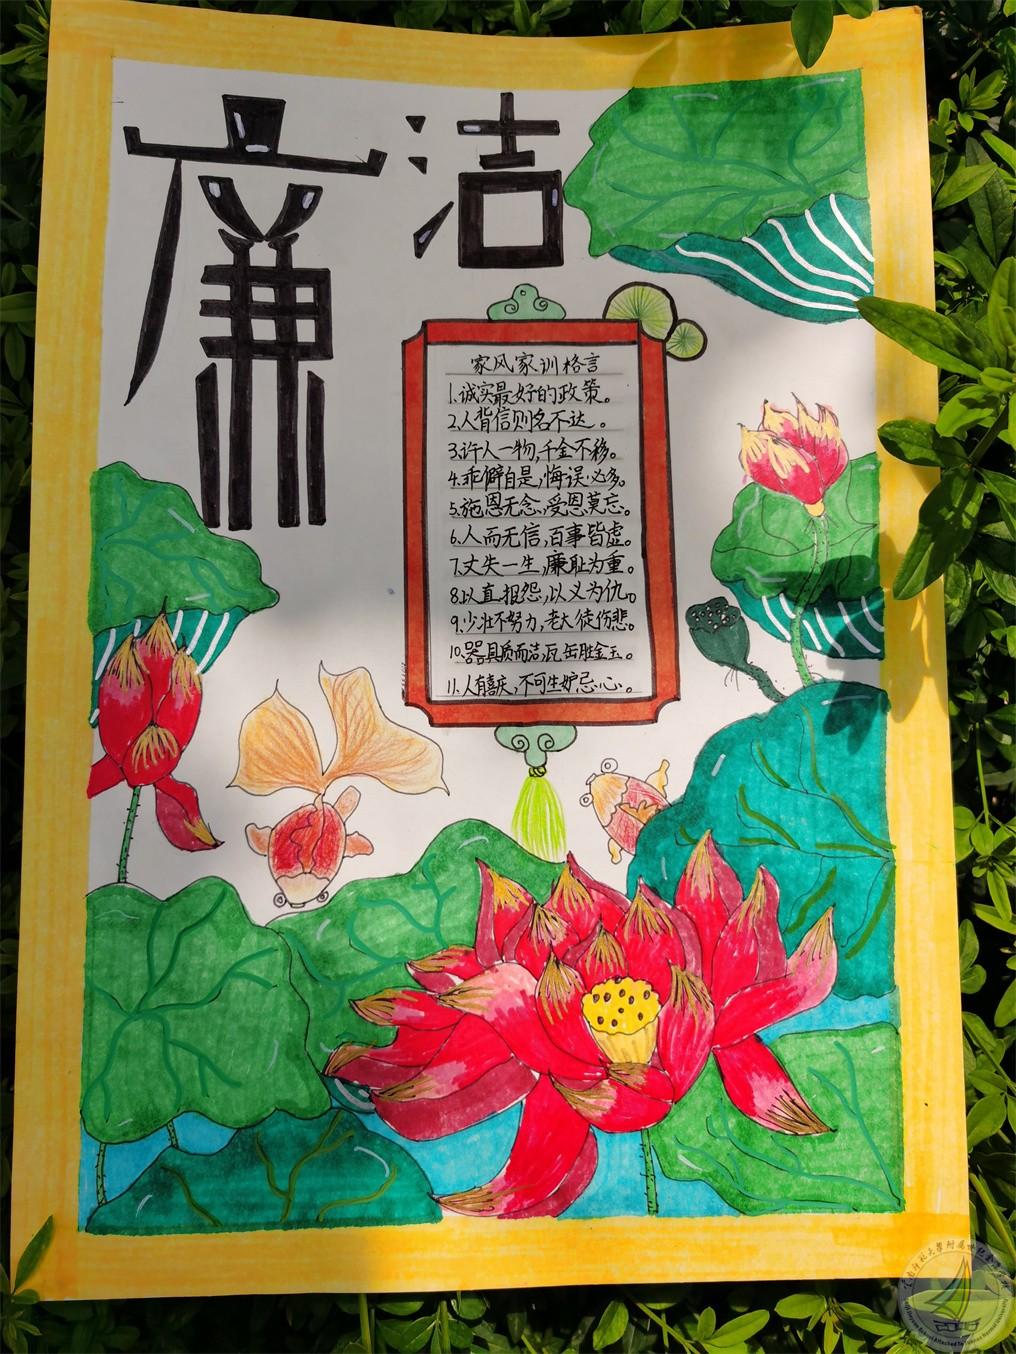 廉洁
家风家训格言
1.诚实最好的政策。
2.人背信则名不达。
3.许人一物,千金不移。
4.乖僻自是,悔误必多。
5.施恩无念,受恩莫忘。
6.人而无信,百事皆虚。
7.丈失一生,廉耻为重。
8.以直报怨,以义为仇。
9.少壮不努力,老大徒伤悲。
10.器具质而洁,瓦缶胜金玉。
11.人有喜庆,不可生妒忌心。